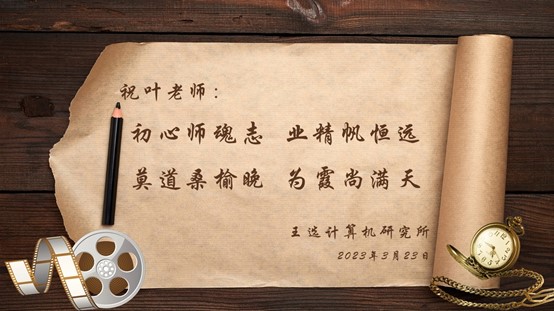 祝叶老师：
初心师魂志 业精帆恒远
莫道桑榆晚 为霞尚满天
王选计算机研究所
2023年3月23日